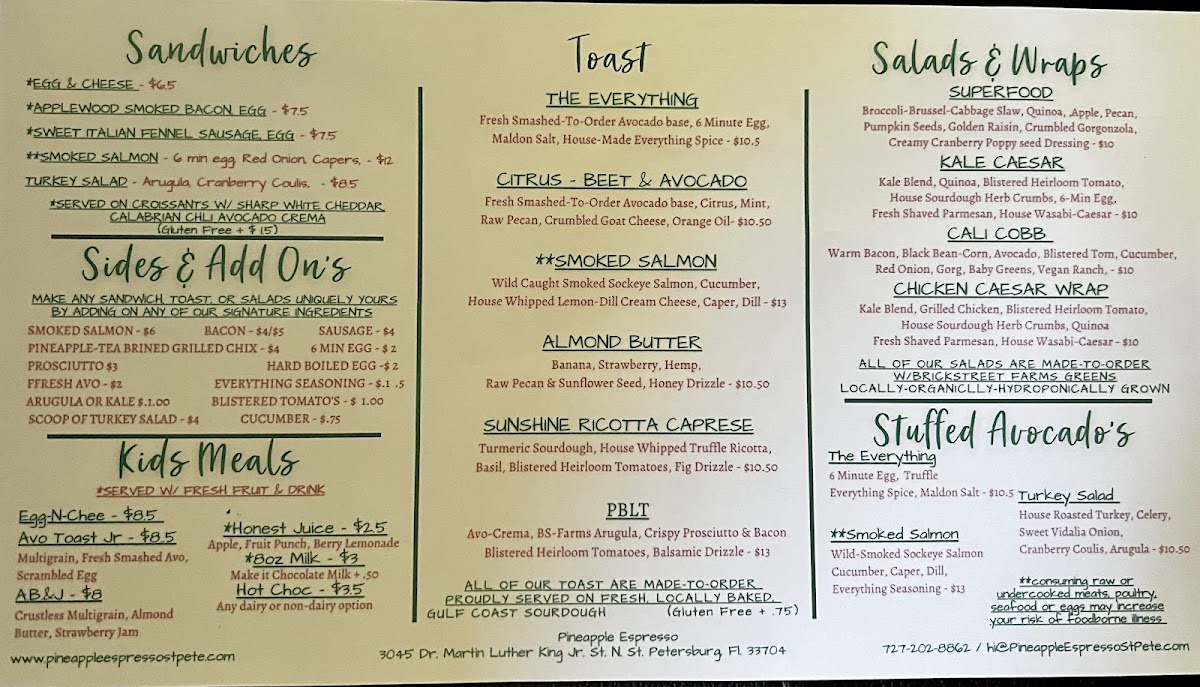 Sandwiches
*EGG & CHEESE - $6.5
*APPLEWOOD SMOKED BACON, EGG - $7.5
*SWEET ITALIAN FENNEL SAUSAGE, EGG - $7.5
**SMOKED SALMON - 6 min egg, Red Onion, Capers, - $12
TURKEY SALAD - Arugula, Cranberry Coulis, - $8.5
*SERVED ON CROISSANTS W/ SHARP WHITE CHEDDAR,
CALABRIAN CHLI AVOCADO CREMA
(Gluten Free + $ 1.5)
Sides & Add On's
MAKE ANY SANDWICH, TOAST, OR SALADS UNIQUELY YOURS
BY ADDING ON ANY OF OUR SIGNATURE INGREDIENTS
SMOKED SALMON - $6 BACON - $4/$5 SAUSAGE - $4
PINEAPPLE-TEA BRINED GRILLED CHIX - $4 6 MIN EGG - $ 2
PROSCIUTTO $3 HARD BOILED EGG -$ 2
FFRESH AVO - $2 EVERYTHING SEASONING - $.1 .5
ARUGULA OR KALE $.1.00 BLISTERED TOMATO'S - $ 1.00
SCOOP OF TURKEY SALAD - $4 CUCUMBER - $.75
Kids Meals
*SERVED W/ FRESH FRUIT & DRINK
Egg-N-Chee - $8.5
Avo Toast Jr - $8.5
Multigrain, Fresh Smashed Avo,
Scrambled Egg
AB&J - $8
Crustless Multigrain, Almond
Butter, Strawberry Jam
*Honest Juice - $2.5
Apple, Fruit Punch, Berry Lemonade
*8oz Milk - $3
Make it Chocolate Milk + .50
Hot Choc - $3.5
Any dairy or non-dairy option
www.pineappleespressostpete.com
Toast
THE EVERYTHING
Fresh Smashed-To-Order Avocado base, 6 Minute Egg,
Maldon Salt, House-Made Everything Spice - $10.5
CITRUS - BEET & AVOCADO
Fresh Smashed-To-Order Avocado base, Citrus, Mint,
Raw Pecan, Crumbled Goat Cheese, Orange Oil- $10.50
**SMOKED SALMON
Wild Caught Smoked Sockeye Salmon, Cucumber,
House Whipped Lemon-Dill Cream Cheese, Caper, Dill - $13
ALMOND BUTTER
Banana, Strawberry, Hemp,
Raw Pecan & Sunflower Seed, Honey Drizzle - $10.50
SUNSHINE RICOTTA CAPRESE
Turmeric Sourdough, House Whipped Truffle Ricotta,
Basil, Blistered Heirloom Tomatoes, Fig Drizzle - $10.50
PBLT
Avo-Crema, BS-Farms Arugula, Crispy Prosciutto & Bacon
Blistered Heirloom Tomatoes, Balsamic Drizzle - $13
ALL OF OUR TOAST ARE MADE-TO-ORDER
PROUDLY SERVED ON FRESH, LOCALLY BAKED,
GULF COAST SOURDOUGH (Gluten Free + .75)
Pineapple Espresso
3045 Dr. Martin Luther King Jr. St. N. St. Petersburg, Fl. 33704
Salads & Wraps
SUPERFOOD
Broccoli-Brussel-Cabbage Slaw, Quinoa, Apple, Pecan,
Pumpkin Seeds, Golden Raisin, Crumbled Gorgonzola,
Creamy Cranberry Poppy seed Dressing - $10
KALE CAESAR
Kale Blend, Quinoa, Blistered Heirloom Tomato,
House Sourdough Herb Crumbs, 6-Min Egg,
Fresh Shaved Parmesan, House Wasabi-Caesar - $10
CALI COBB
Warm Bacon, Black Bean-Corn, Avocado, Blistered Tom, Cucumber,
Red Onion, Gorg, Baby Greens, Vegan Ranch, - $10
CHICKEN CAESAR WRAP
Kale Blend, Grilled Chicken, Blistered Heirloom Tomato,
House Sourdough Herb Crumbs, Quinoa
Fresh Shaved Parmesan, House Wasabi-Caesar - $10
ALL OF OUR SALADS ARE MADE-TO-ORDER
W/BRICKSTREET FARMS GREENS
LOCALLY-ORGANICLLY-HYDROPONICALLY GROWN
Stuffed Avocado's
The Everything
6 Minute Egg, Truffle
Everything Spice, Maldon Salt - $10.5
**Smoked Salmon
Wild-Smoked Sockeye Salmon
Cucumber, Caper, Dill,
Everything Seasoning - $13
Turkey Salad
House Roasted Turkey, Celery,
Sweet Vidalia Onion,
Cranberry Coulis, Arugula - $10.50
**consuming raw or
undercooked meats, poultry,
seafood or eggs may increase
your risk of foodborne illness
727-202-8862 / hi@PineappleEspressoStPete.com